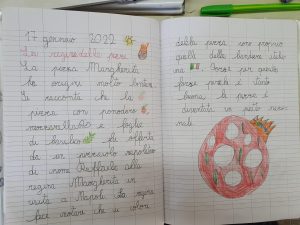 17 gennaio 2022
La regina della pizza
La pizza Margherita
ha origini molto lontane.
Si racconta che la
pizza con pomodoro
mozzarella e foglie
di basilico fu offerta
da un pizzaiolo napoletano
di nome Raffaele alla
regina Margherita in
visita a Napoli. La regina
fece notare che i colori
della pizza son proprio
quelli della bandiera italia
na Forse per questo
forse perché è tanto
buona, la pizza è
diventata un piatto nazio
nale.